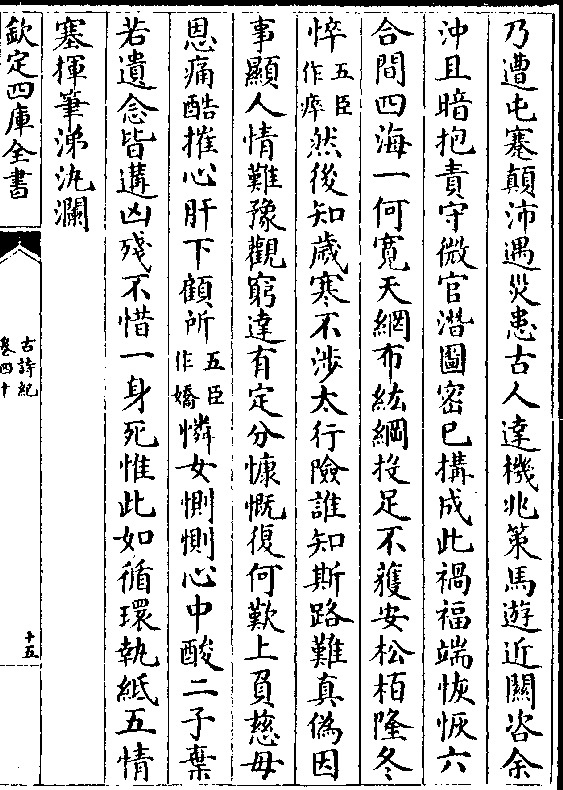 乃遭屯蹇顛沛遇災患古人達機兆策馬遊近關咨余
沖且暗抱責守微官潛圖密已搆成此禍福端恢恢六
合間四海一何寛天網布紘綱投足不獲安松栢隆冬
悴五臣作瘁然後知歲寒不涉太行險誰知斯路難真偽因
事顯人情難豫觀窮達有定分慷慨復何歎上負慈母
恩痛酷摧心肝下顧所五臣作嬌憐女惻惻心中酸二子棄
若遺念皆遘凶殘不惜一身死惟此如循環執紙五情
塞揮筆涕汍瀾
欽定四庫全書
古詩紀
卷四十
十五